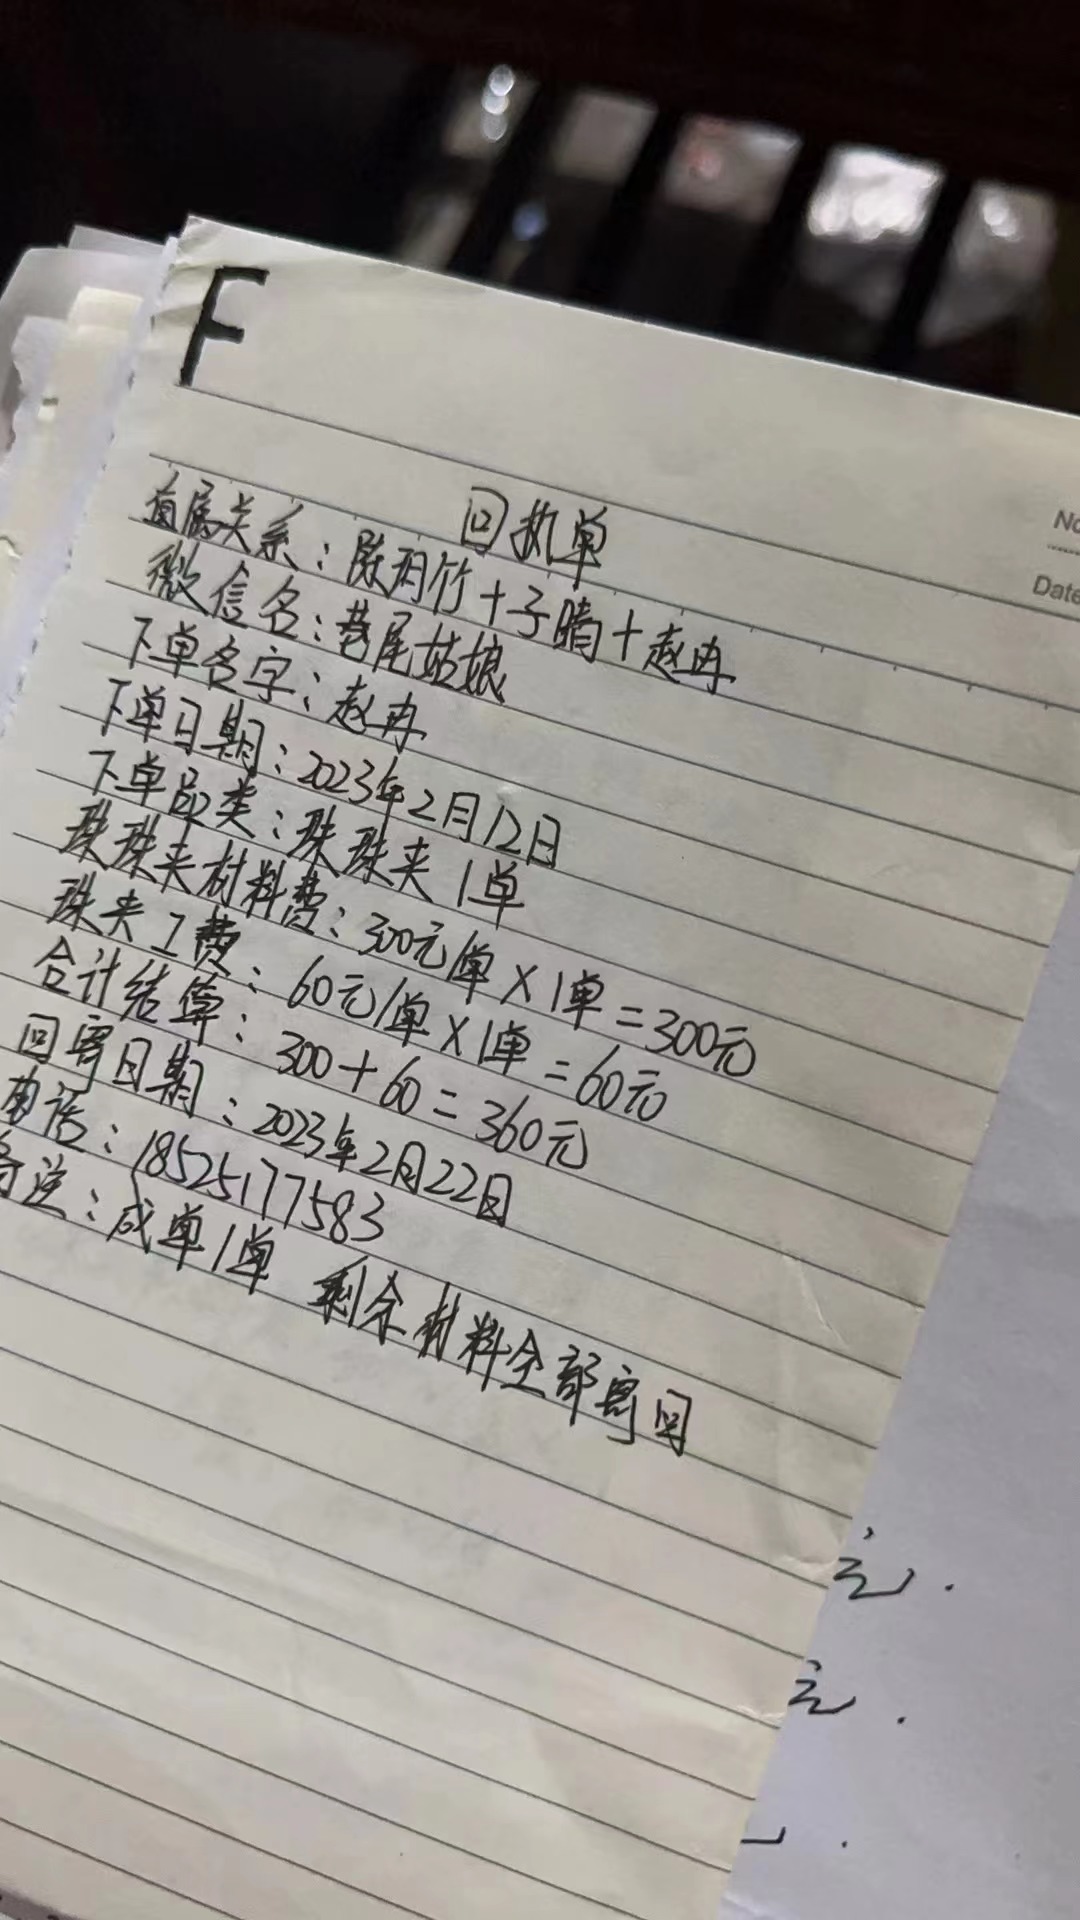 F
No
Date
回执单
直属关系：陈玥竹+子晴+赵冉
微信名：巷尾姑娘
下单名字：赵冉
下单日期：2023年2月12日
下单品类：珠珠夹1单
珠珠夹材料费：300元/单×1单=300元
珠夹工费：60元/单×1单=60元
合计结算：300+60=360元
回寄日期：2023年2月22日
电话：18525177583
备注：成单1单 剩余材料全部寄回
元.
元.